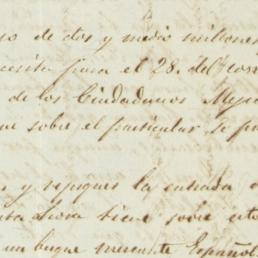 so de dos y medio millones
necesita para el 28. del corr
de los Ciudadanos Mejic
que sobre el particular se pu
s y repiques la entrada
esta hora tiene sobre
un buque mercante Español